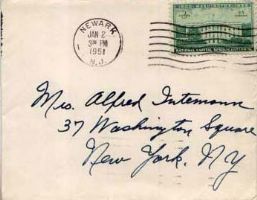 NEWARK
JAN 2
3 PM
1951
N.J.
NATIONAL CAPITAL SESQUICENTENNIAL
Mrs. Alfred Intemann
37 Washington Square
New York. NY